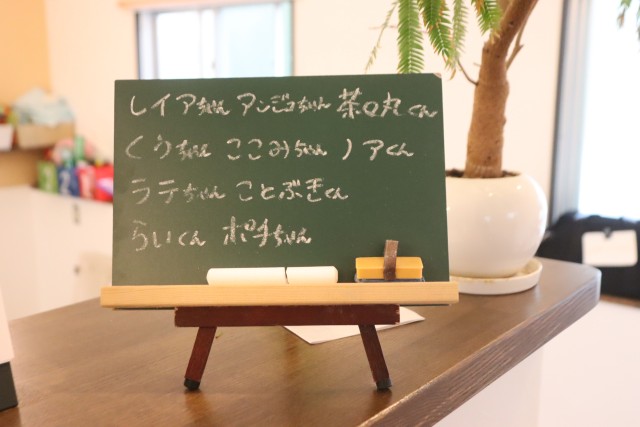 レイアちゃん アンジュちゃん 茶々丸くん
くうちゃん ここみちゃん ノアくん
ラテちゃん ことぶきくん
らいくん ポチちゃん